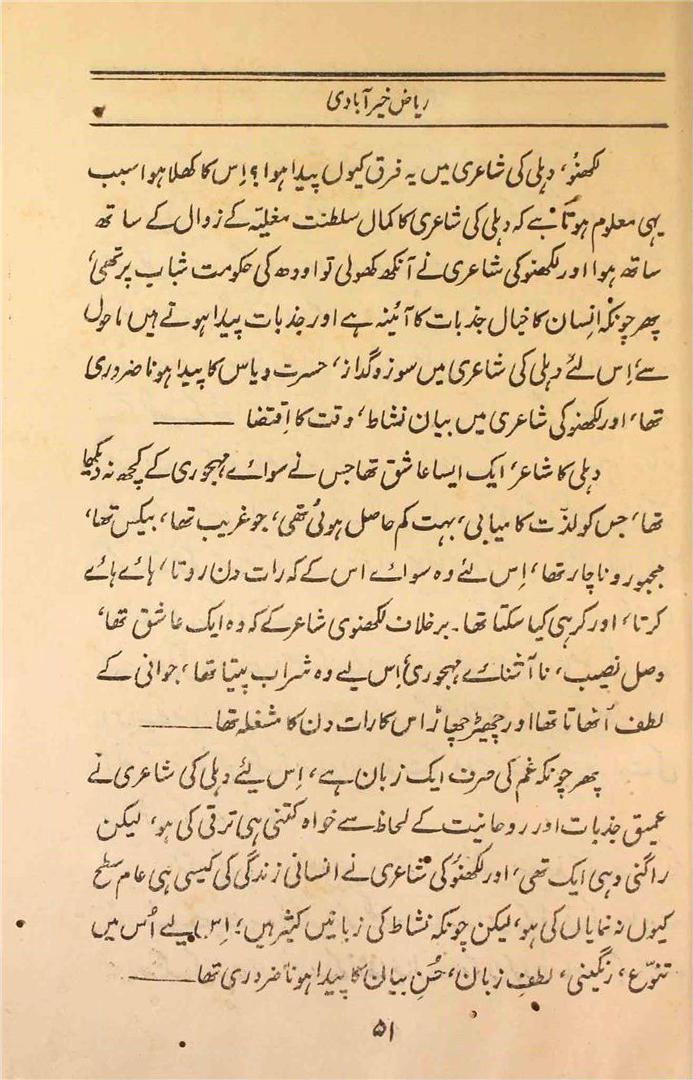 ریاض خیرآبادی
لکھنؤ، دہلی کی شاعری میں یہ فرق کیوں پیدا ہوا؟ اِس کا کھلا ہوا سبب
یہی معلوم ہوتا ہے کہ دہلی کی شاعری کا کمال سلطنت مغلیّہ کے زوال کے ساتھ
ساتھ ہوا اور لکھنو کی شاعری نے آنکھ کھولی تو اودھ کی حکومت شباب پر تھی،
پھر چونکہ اِنسان کا خیال جذبات کا آئینہ ہے اور جذبات پیدا ہوتے ہیں ماحول
سے، اِس لئے دہلی کی شاعری میں سوز و گداز، حسرت و یاس کا پیدا ہونا ضروری
تھا، اور لکھنو کی شاعری میں بیان نشاط، وقت کا اِقتضا ———
دہلی کا شاعر، ایک ایسا عاشق تھا جس نے سواے مہجوری کے کچھ نہ دیکھا
تھا، جس کو لذّت کامیابی، بہت کم حاصل ہوئی تھی، جو غریب تھا، بیکس تھا،
مجبور و ناچار تھا، اِس لئے وہ سواے اس کے کہ رات دن روتا، ہاے ہاے
کرتا، اور کر ہی کیا سکتا تھا۔ برخلاف لکھنوی شاعر کے کہ وہ ایک عاشق تھا،
وصل نصیب، نا آشناے مہجوری، اِس لیے وہ شراب پیتا تھا، جوانی کے
لطف اُٹھاتا تھا اور چھیڑ چھاڑ اس کا رات دن کا مشغلہ تھا ———
پھر چونکہ غم کی صرف ایک زبان ہے، اِس لیئے دہلی کی شاعری نے
عمیق جذبات اور روحانیت کے لحاظ سے خواہ کتنی ہی ترقی کی ہو، لیکن
راگنی وہی ایک تھی، اور لکھنؤ کی شاعری نے انسانی زندگی کی کیسی ہی عام سطح
کیوں نہ نمایاں کی ہو، لیکن چونکہ نشاط کی زبانیں کثیر ہیں؛ اِس لیے اُس میں
تنوّع، رنگینی، لطفِ زبان، حُسنِ بیان کا پیدا ہونا ضروری تھا ———
۵۱